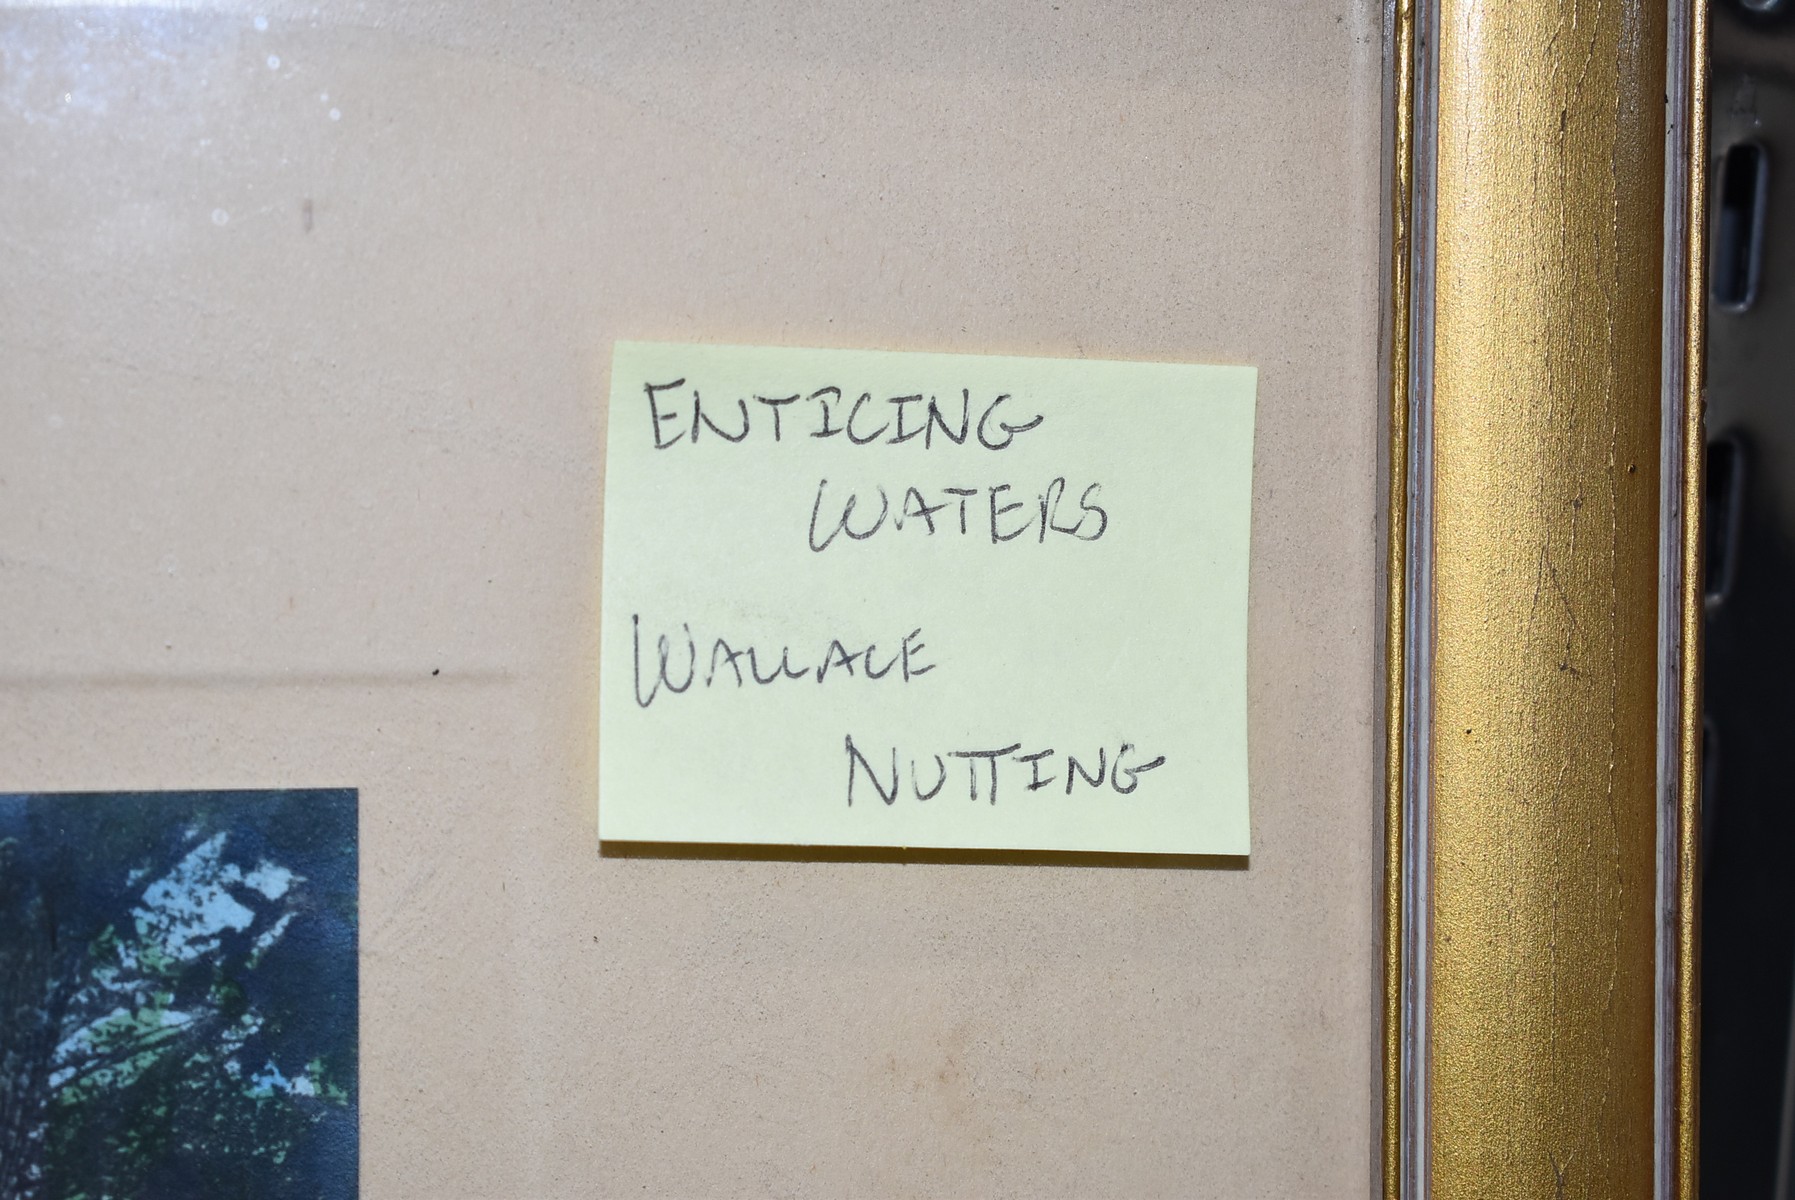 ENTICING
WATERS
WALLACE
NUTTING